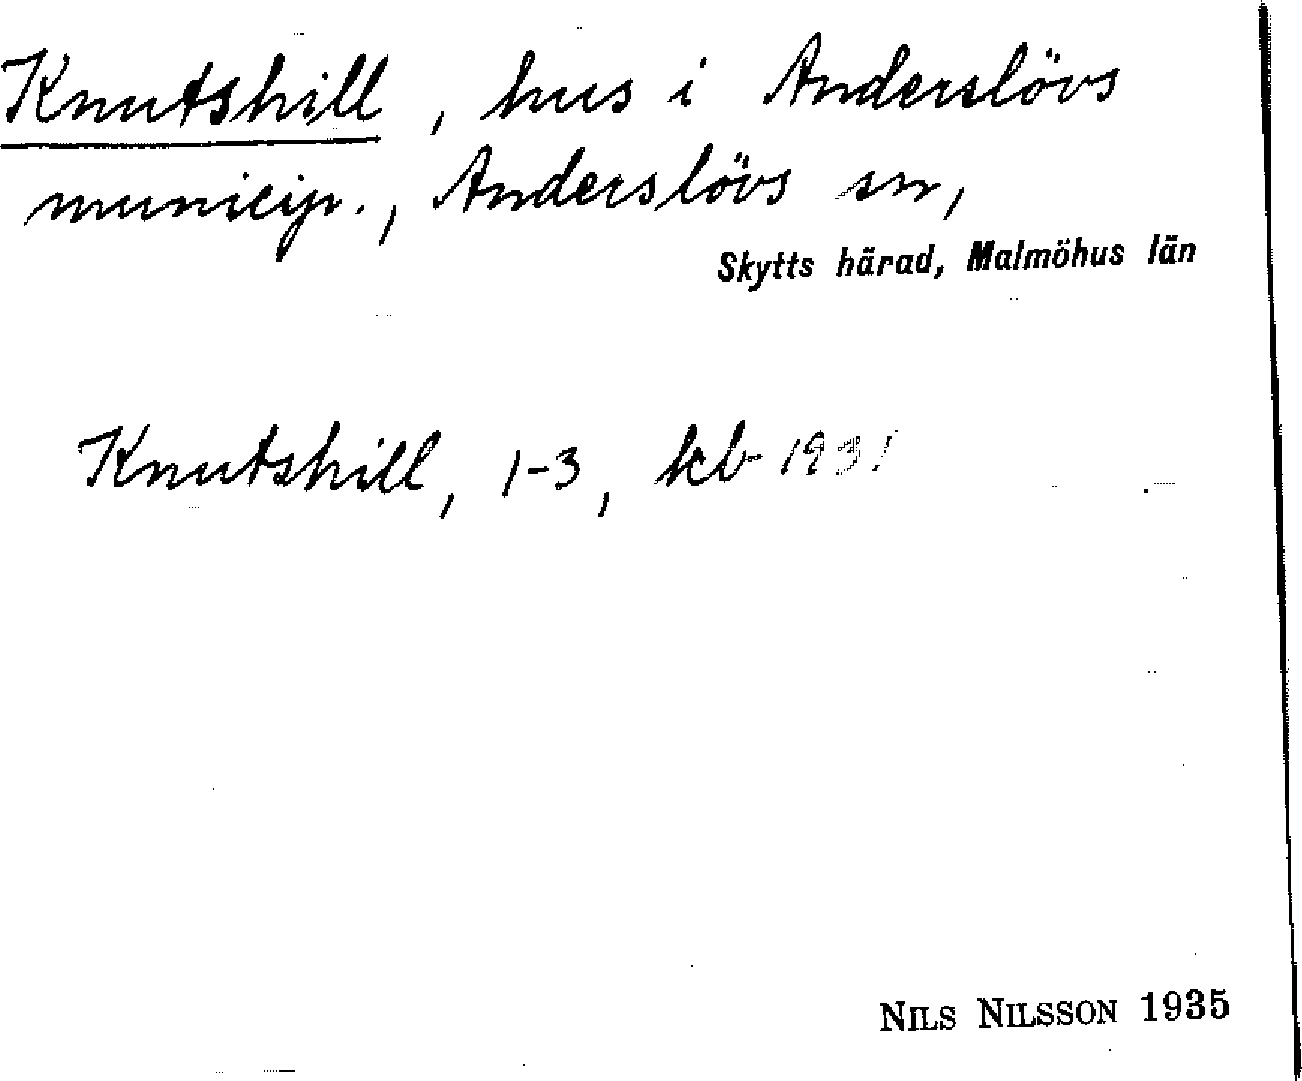 Knutshill, hus i Anderslövs
municip., Anderslövs sn,
Skytts härad, Malmöhus län
Knutshill, 1-3, kb 1931
NILS NILSSON 1935